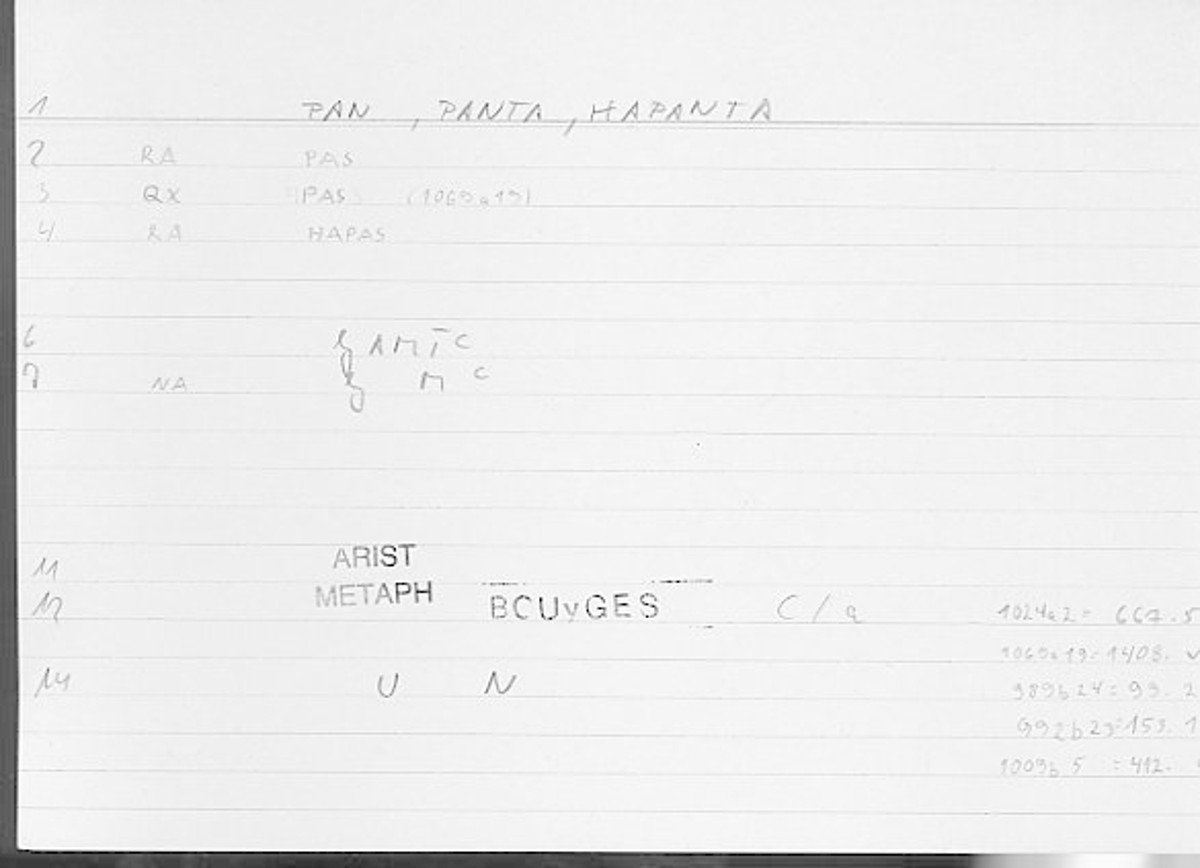 1 PAN, PANTA, HAPANTA
2 RA PAS
3 QX PAS (1069a19)
4 RA HAPAS
6 AMTC
7 NA M C
11 ARIST
12 METAPH BCUvGES C/a 1024a2 = 667.5
1069a19 = 1408.
14 U N 989b24 = 99.2
992b23 = 153.1
1009b5 = 412.